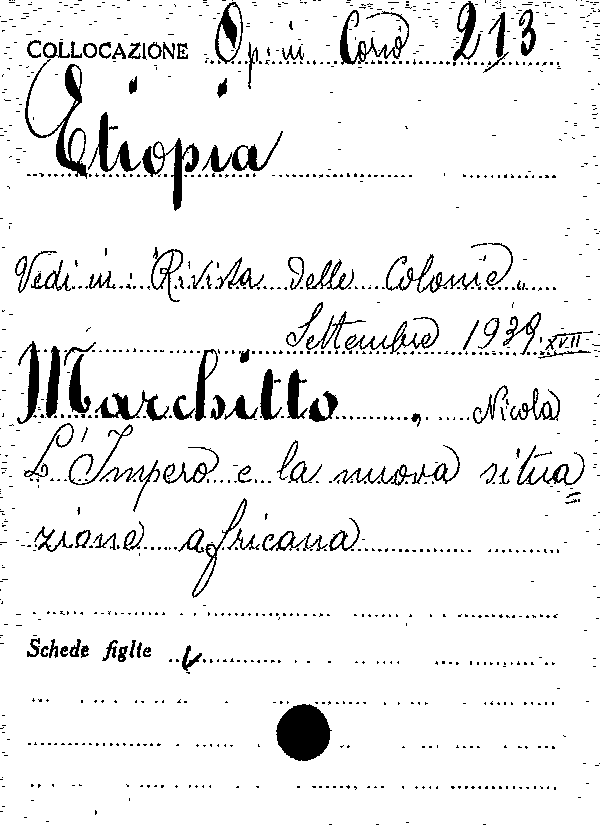 COLLOCAZIONE Op. in Corso 213
Etiopia
Vedi in: "Rivista delle Colonie„
Settembre 1939. XVII
Marchitto, Nicola
L'Impero e la nuova situa
zione africana
Schede figlie